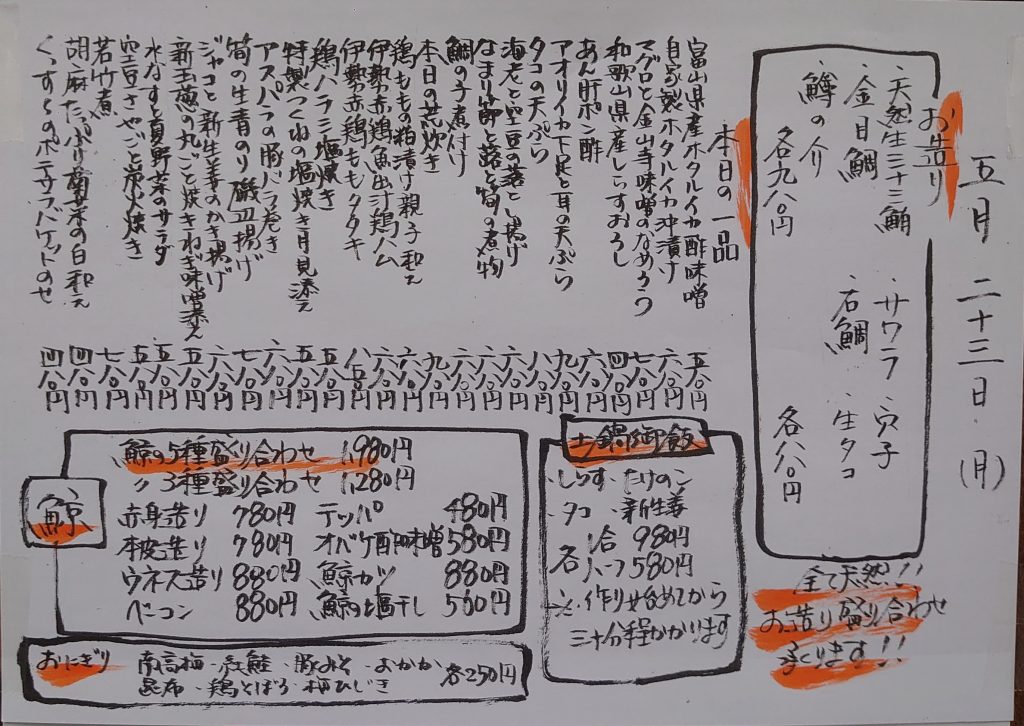 五月二十三日(月)
お造り
・天然生三十三鮪
・サワラ
・穴子
・金目鯛
・石鯛
・生タコ
・鱒の介
各九八〇円
各八八〇円
全て天然!!
お造り盛り合わせ
承ります!!
本日の一品
富山県産ホタルイカ酢味噌 五八〇円
自家製ホタルイカ沖漬け 六八〇円
マグロと金山寺味噌のなめろう 七八〇円
和歌山県産しらすおろし 四八〇円
あん肝ポン酢 六八〇円
アオリイカ下足と耳の天ぷら 九八〇円
タコの天ぷら 八八〇円
海老と空豆の落とし揚げ 六八〇円
なまり節と蕗と筍の煮物 六八〇円
鯛の子煮付け 六八〇円
本日の荒炊き 九八〇円
鶏ももの粕漬け親子和え 六八〇円
伊勢赤鶏魚出汁鶏ハム 六八〇円
伊勢赤鶏ももタタキ 八五〇円
鶏ハラミ塩焼き 五八〇円
特製つくねの塩焼き月見添え 五八〇円
アスパラの豚バラ巻き 六八〇円
筍の生青のり磯辺揚げ 七八〇円
ジャコと新生姜のかき揚げ 六八〇円
新玉葱の丸ごと焼きねぎ味噌添え 五八〇円
水なすと夏野菜のサラダ 五八〇円
空豆さやごと炭火焼き 五八〇円
若竹煮 七八〇円
胡麻たっぷり菊菜の白和え 四八〇円
くっすぅらのポテサラバケットのせ 四八〇円
土鍋御飯
・しらす・たけのこ
・タコ・新生姜
各 1合 980円
ハーフ 580円
※作り始めてから
三十分程かかります
鯨
鯨の5種盛り合わせ 1,980円
〃 3種盛り合わせ 1,280円
赤身造り 780円 テッパ 480円
本皮造り 780円 オバケ酢味噌 580円
ウネス造り 880円 鯨カツ 880円
ベーコン 880円 鯨の塩干し 500円
おにぎり
南高梅・紅鮭・豚みそ・おかか
昆布・鶏そぼろ・梅ひじき 各250円